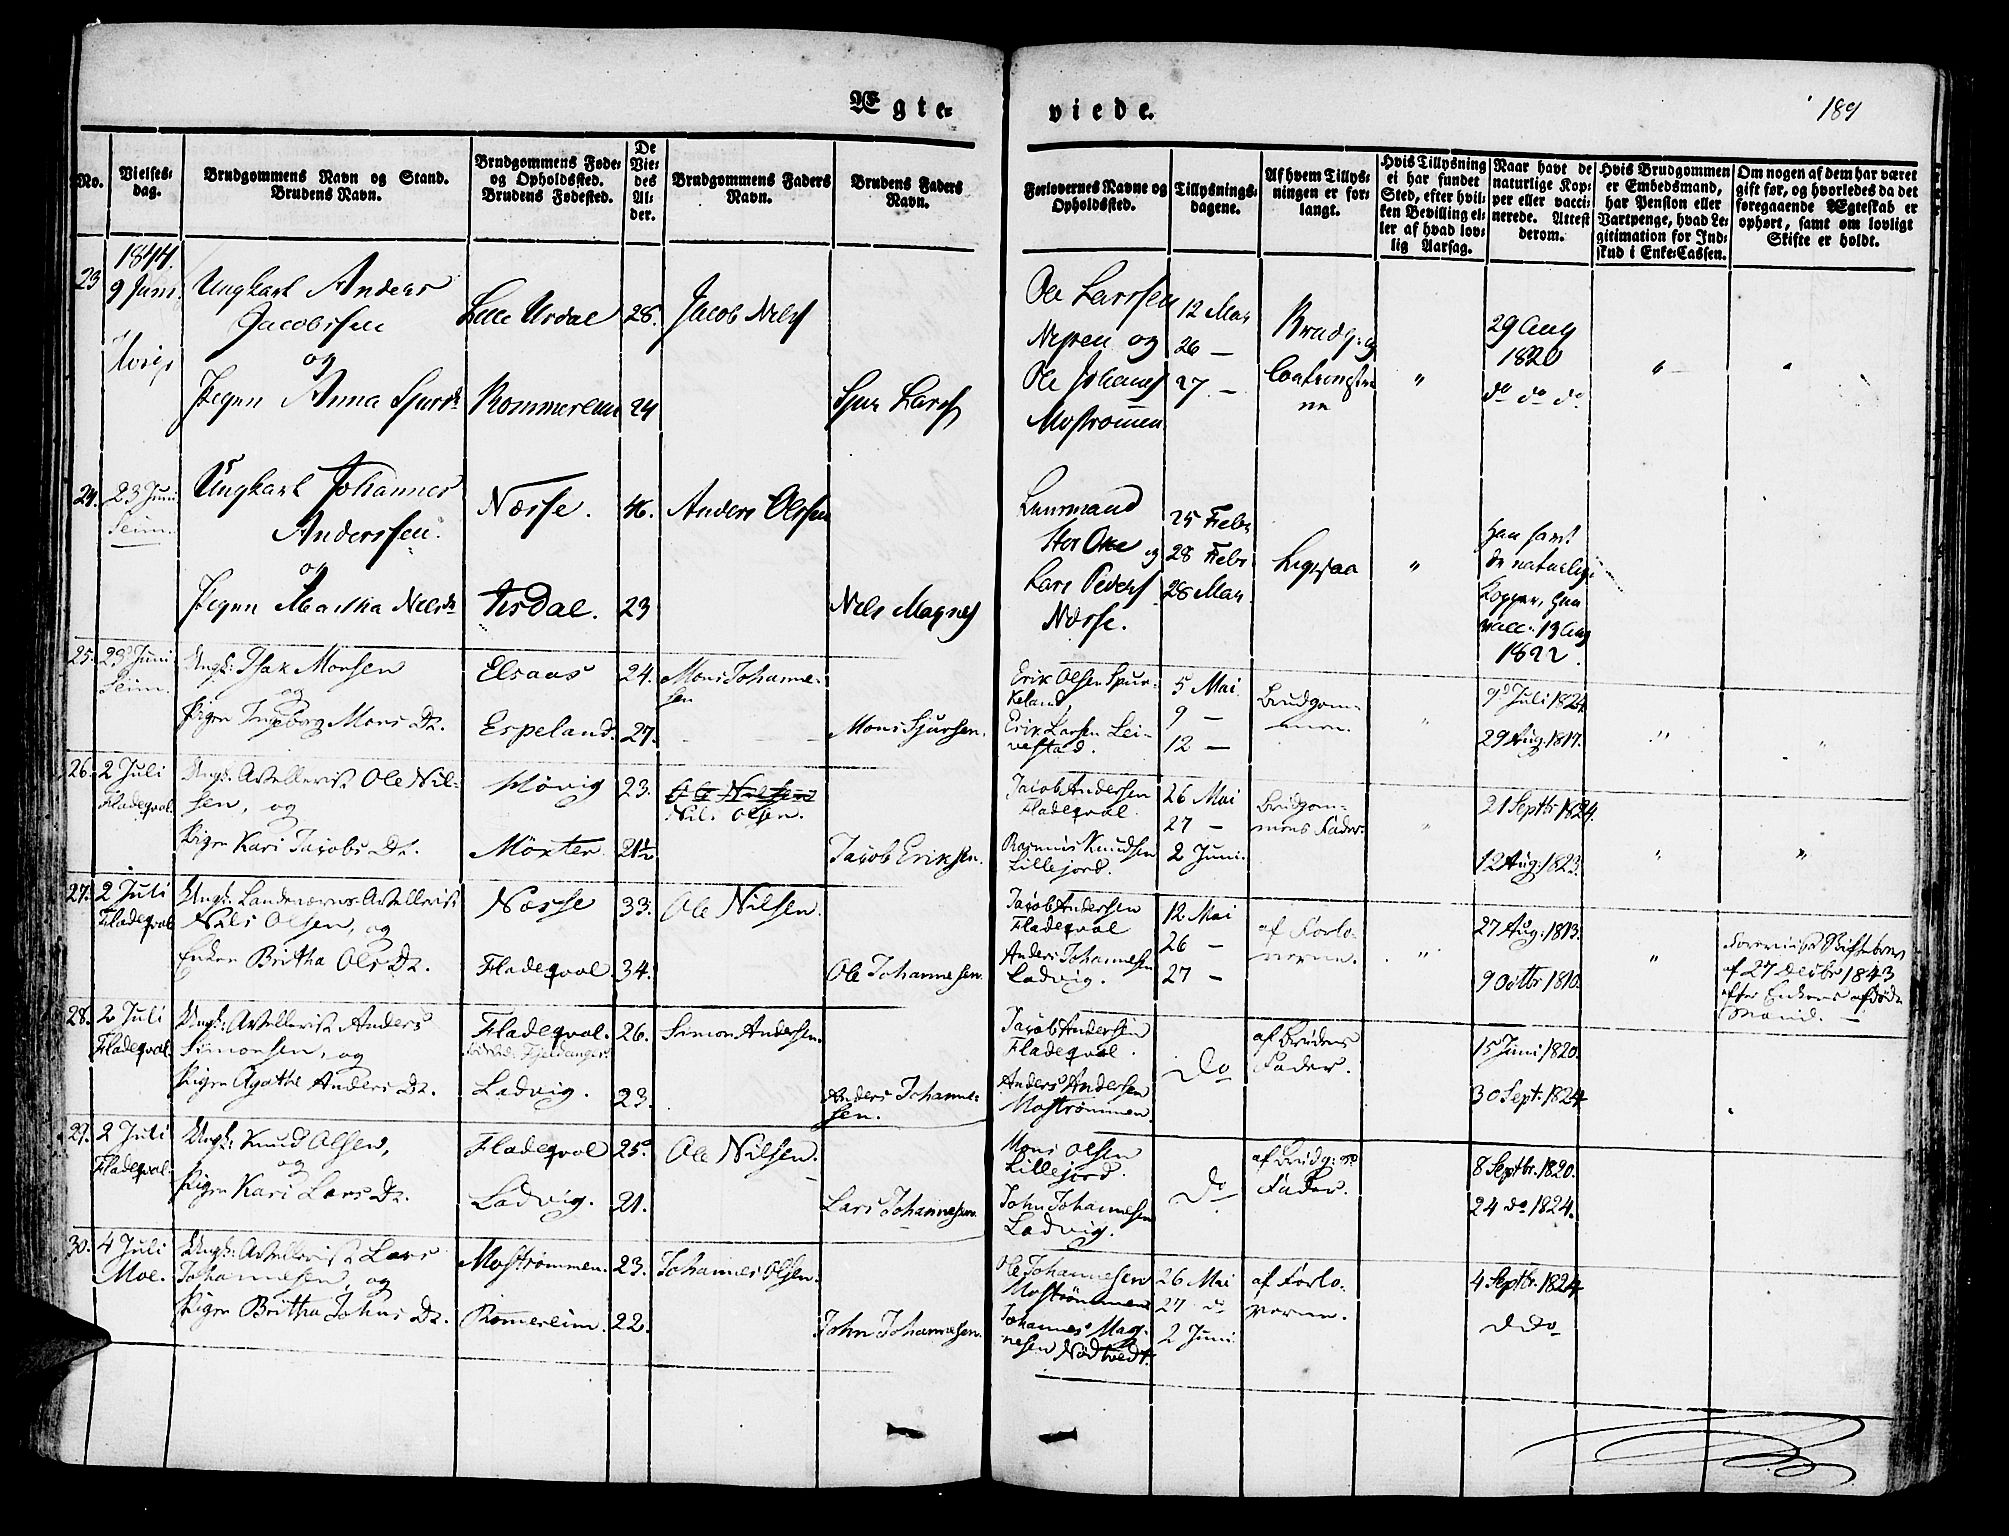 Ægte-
viede.
189
No.
Vielses-
dag.
Brudgommens Navn og Stand.
Brudens Navn.
Brudgommens Føde-
og Opholdssted.
Brudens Fødested.
De
Vie-
des
Al-
der.
Brudgommens Faders
Navn.
Brudens Faders
Navn.
Forlovernes Navne og
Opholdssted.
Tillysnings-
dagene.
Af hvem Tillys-
ningen er for-
langt.
Hvis Tillysning
ei har fundet
Sted, efter hvil-
ken Bevilling el-
ler af hvad lov-
lig Aarsag.
Naar havt de
naturlige Kop-
per eller vacci-
nerede. Attest
derom.
Hvis Brudgommen
er Embedsmand,
har Pension eller
Vartpenge, hvad Le-
gitimation for Ind-
skud i Enke-Cassen.
Om nogen af dem har været
gift før, og hvorledes da det
foregaaende Ægteskab er
ophørt, samt om lovligt
Skifte er holdt.
1844.
23
9 Juni
Ungkarl Anders
Jacobsen
og
Pigen Anna Sjurs
Lille Urdal
Rommereim
28.
24
Jacob Nels
Sjur Lars
Ole Larssen
Nepen og
Ole Johans
Mostrømmen
12 Mai
26 —
27 —
Brudg: og
29 Aug
1820
do do do
24.
23 Juni
Seim.
Ungkarl Johannes
Anderssen
og
Pigen Martha Nels
Næsse.
Urdal.
46.
23
Anders Olssen
Nels Magnes
Lars Peders
Næsse.
25 Febr
28 Febr
28 Mar
"
Han havt
de naturlige
Kopper, Hun
vacc. 13 Aug
1822.
25.
23 Juni
Seim.
Ungk: Isak Monsen
og
Pigen Ingeborg Mons Dr.
Elsaas
Espeland.
24.
27.
Mons Johanne-
sen
Mons Sjursen.
Erik Olsen Spur-
keland,
Erik Larsen Lei-
vestad.
5 Mai
9 —
12 —
Brudgom-
men.
9 Juli 1824.
29 Aug. 1817.
26.
2 Juli
Fladeqval.
Ungk: Artillerist Ole Nil-
sen, og
Pigen Kari Jacobs Dr.
Høvig
Møxter
23.
21½
Ole Nilsen
Nils Olsen.
Jacob Eriksen.
Jacob Andersen
Fladeqval.
Rasmus Knudsen
Lillejord.
26 Mai
27 —
2 Juni.
Brudgom-
mens Fader.
21 Septbr 1824.
12 Aug: 1823.
27.
2 Juli
Fladeqval
Ungk: Landeværns Artillerist
Nils Olsen, og
Enken Britha Ols Dr.
Næsse
Fladeqval
33.
34.
Ole Nilsen.
Ole Johannesen.
Jacob Andersen
Fladeqval
Anders Johannesen
Ladvig.
12 Mai
26 —
27 —
af Forlo-
verne.
27 Aug: 1813.
9 Octbr 1810.
Forevist Skiftebrev
af 27 Decbr 1843
efter Enkens afdøde
Mand. —
28.
2 Juli
Fladeqval.
Ungk: Artillerist Anders
Simonsen, og
Pigen Agathe Anders Dr.
Fladeqval.
Ladvig.
26.
23.
Simon Andersen.
Anders Johanne-
sen.
Jacob Andersen
Fladeqval.
Anders Andersen
Mostrømmen
Do
af Brudens
Fader.
15 Juni 1820.
30 Sept: 1824.
29.
2 Juli
Fladeqval.
Ungk: Knud Olsen,
og
Pigen Kari Lars Dr.
Fladeqval
Ladvig.
25.
21.
Ole Nilsen.
Lars Johannesen.
Mons Olsen
Lillejord.
John Johannesen
Ladvig.
Do
af Brudg:ns
Fader.
8 Septbr. 1820.
24 do 1824.
30.
4 Juli
Moe.
Ungk: Artillerist Lars
Johannesen, og
Pigen Britha Johns Dr.
Mostrømmen.
Romereim.
23.
22.
Johannes Olsen.
John Johannesen.
Ole Johannesen
Mostrømmen
Johannes Mag-
nesen Nødtvedt.
26 Mai
27 do
2 Juni
af Forlo-
verne.
4 Septbr. 1824.
ddo